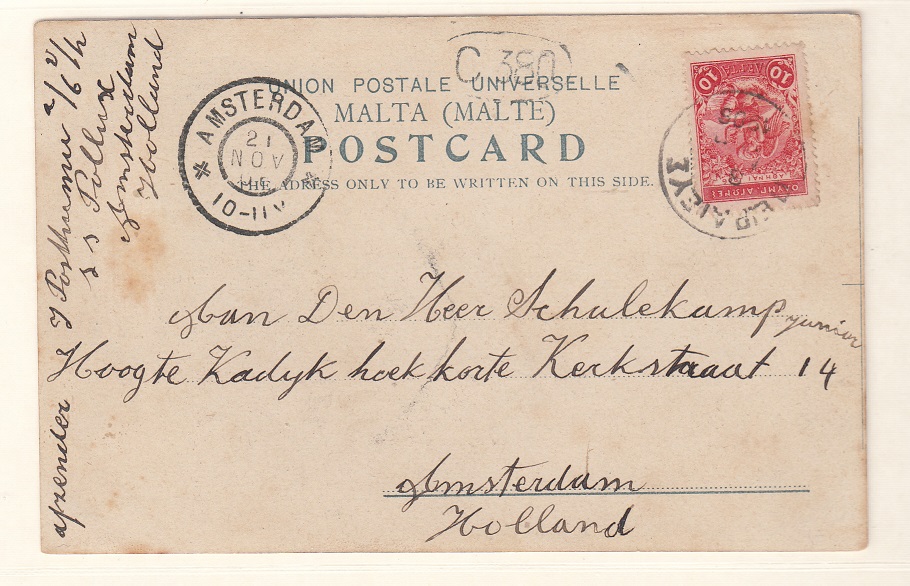 C. 380
UNION POSTALE UNIVERSELLE
MALTA (MALTE)
POSTCARD
THE ADRESS ONLY TO BE WRITTEN ON THIS SIDE.
AMSTERDAM
21
NOV
10-11V
10 10
ΟΛΥΜΠ. ΑΓΩΝΕΣ
ΠΕΙΡΑΙΕΥΣ
Aan Den Heer Schulekamp junior
Hoogte Kadyk hoek korte Kerkstraat 14
Amsterdam
Holland
afzender J Posthumu a/b v/h
s s Pollux
Amsterdam
Holland